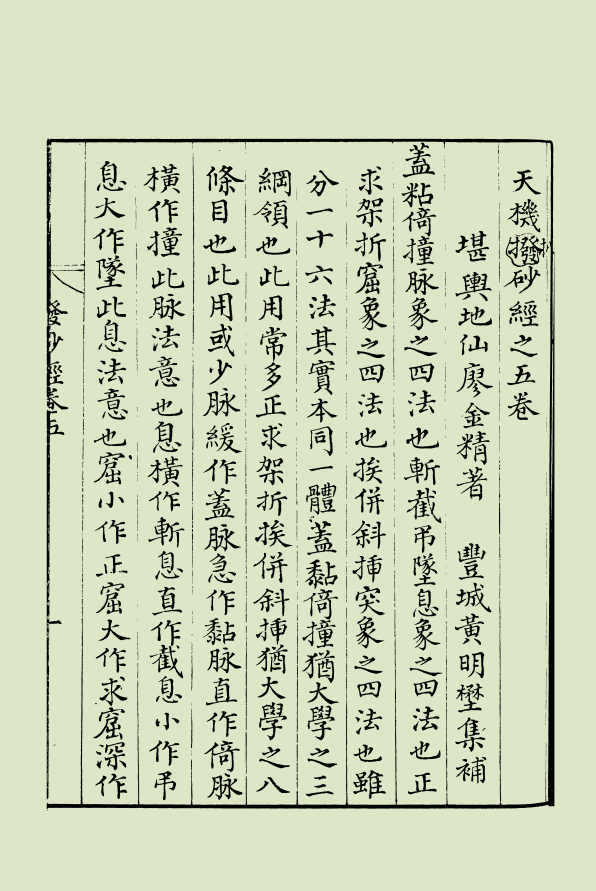 天機撥砂經之五卷
堪輿地仙廖金精著　豐城黃明壄集補
蓋粘倚撞脉象之四法也斬截吊墜息象之四法也正
求架折窟象之四法也挨併斜揷突象之四法也雖
分一十六法其實本同一體蓋黏倚撞猶大學之三
綱領也此用常多正求架折挨併斜揷猶大學之八
條目也此用或少脉緩作蓋脉急作黏脉直作倚脉
橫作撞此脉法意也息橫作斬息直作截息小作吊
息大作墜此息法意也窟小作正窟大作求窟深作
發砂經卷五
一